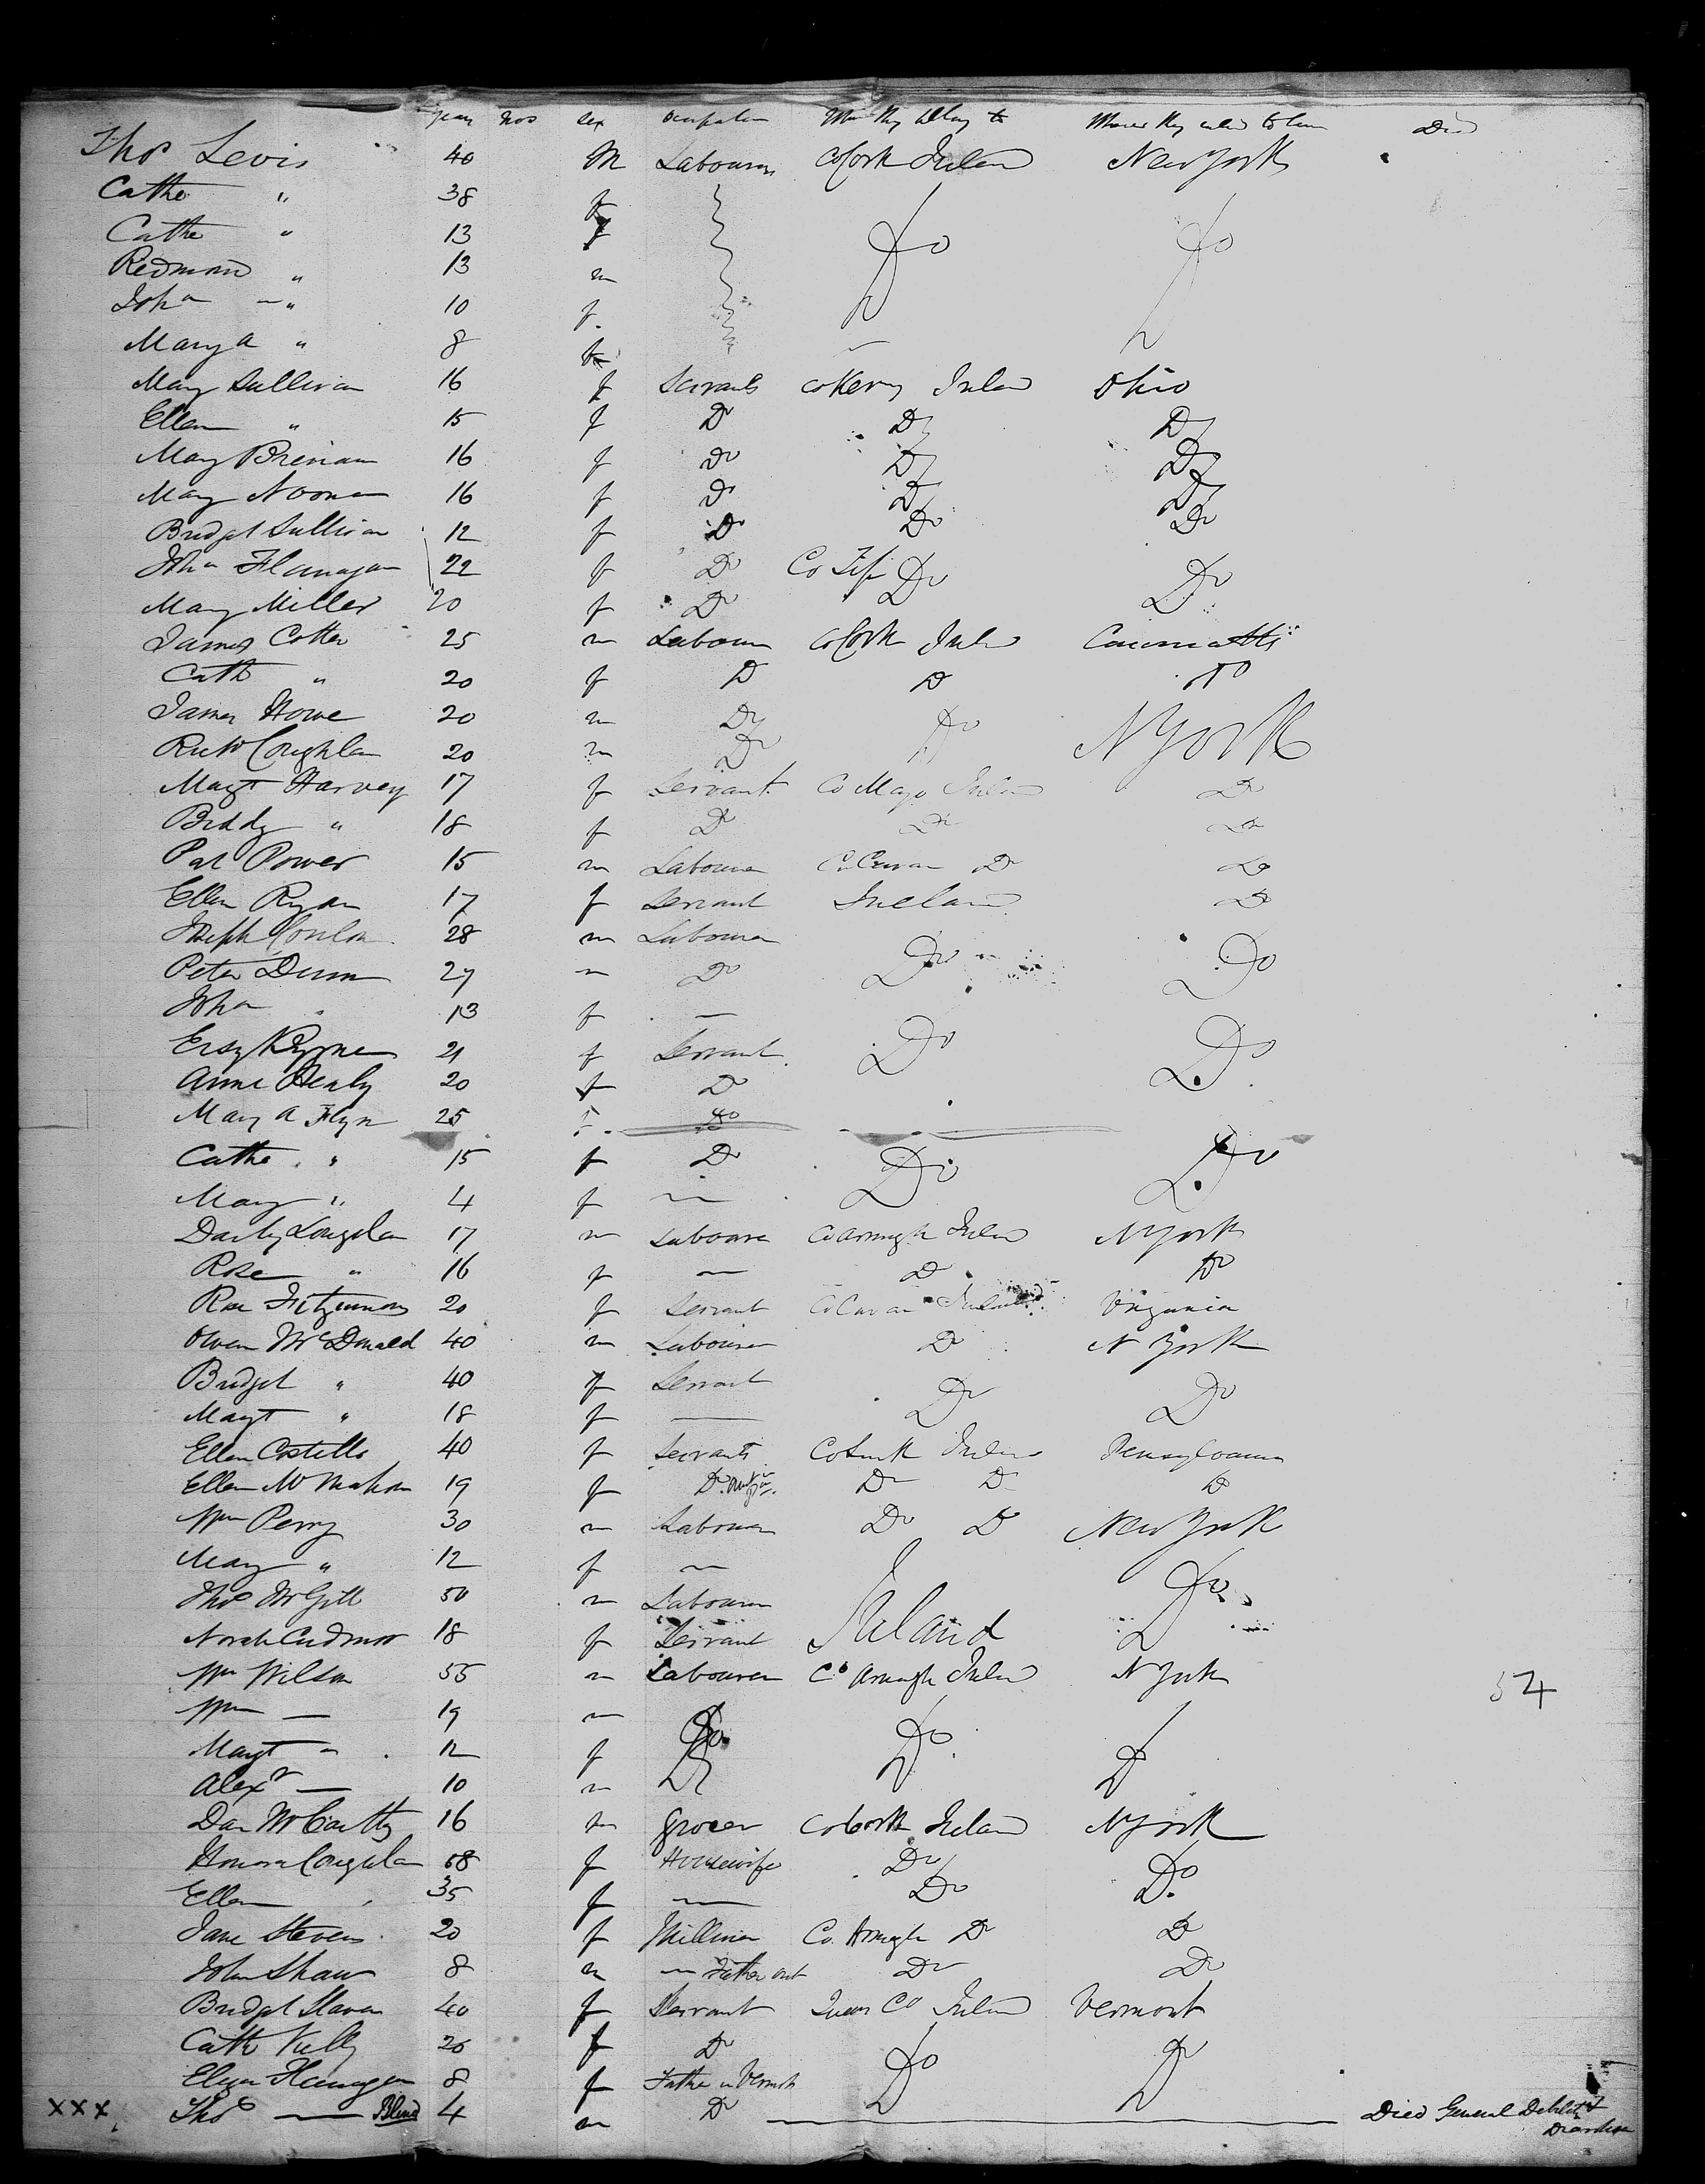 years mos sex occupation
Thos Levis 40 M Labourer Co Cork Ireland New York
Cathe " 38 f
Cathe " 13 f Do Do
Redmond " 13 m
Joha " 10 f
Mary A " 8 f
Mary Sullivan 16 f Servants Co Kerry Ireland Ohio
Ellen " 15 f Do Do Do
Mary Brenan 16 f Do Do Do
Mary Noonan 16 f Do Do Do
Bridget Sullivan 12 f Do Do Do
Joha Flanagan 22 f Do Co Tip Do Do
Mary Miller 20 f Do
James Cotter 25 m Labourer Co Cork Irela
Cath " 20 f Do Do Do
James Howe 20 m Do Do N York
Coughlan 20 m Do
Margt Harvey 17 f Servant Co Mayo Ireland Do
Biddy " 18 f Do Do Do
Pat Power 15 m Labourer Do Do
Ellen Ryan 17 f Servant Ireland Do
Joseph Conlon 28 m Labourer
Peter Dunn 27 m Do Do Do
Joha 13 f —
21 f Servant Do Do
Anne Healy 20 f Do
Mary A Flyn 25 f do
Cathe " 15 f Do Do Do
Mary " 4 f —
17 m Labourer Co Armagh Ireland N York
Rose " 16 f — Do Do
Rose Fitzsimons 20 f Servant Co Cavan Ireland Virginia
Owen McDonald 40 m Labourer Do N York
Bridget " 40 f Servant
Margt " 18 f — Do Do
Ellen Costello 40 f Servants Ireland Pensylvania
Ellen McMahon 19 f Do Do Do Do
Wm Perry 30 m Labourer Do Do New York
Mary " 12 f — Do
Thos McGill 50 m Labourer
Norah Cudmor 18 f Servant Ireland
Wm Wilson 55 m Labourer Co Armagh Ireland N York 54
Wm — 19 m
Margt " 12 f Do Do Do
Alexr — 10 m
Dan McCarthy 16 m Grocer Co Cork Ireland N York
Honora Coughlan 58 f Housewife Do
Ellen 35 f — Do Do
Jane Stevens 20 f Milliner Co. Armagh Do Do
John Shaw 8 m — Father out Do Do
Bridget Slaven 40 f Servant Queens Co Ireland Vermont
Cath Kelly 26 f Do
Flanagan 8 f Father in Vermont Do Do
XXX Thos — Blind 4 m Do Died General Debility &
Diarrhea